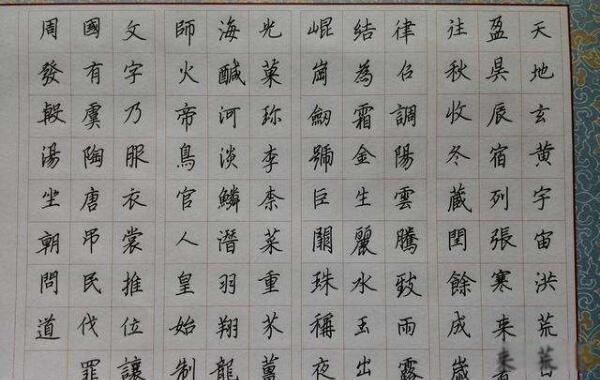 天地玄黄宇宙洪荒
盈昃辰宿列張寒来
往秋收冬藏閏餘成歲
律吕調陽雲騰致雨露
結為霜金生麗水玉出
崐崗劔號巨闕珠稱夜
光菓珍李柰菜重芥薑
海鹹河淡鱗潛羽翔龍
師火帝鳥官人皇始制
文字乃服衣裳推位讓
國有虞陶唐吊民伐罪
周發殷湯坐朝問道